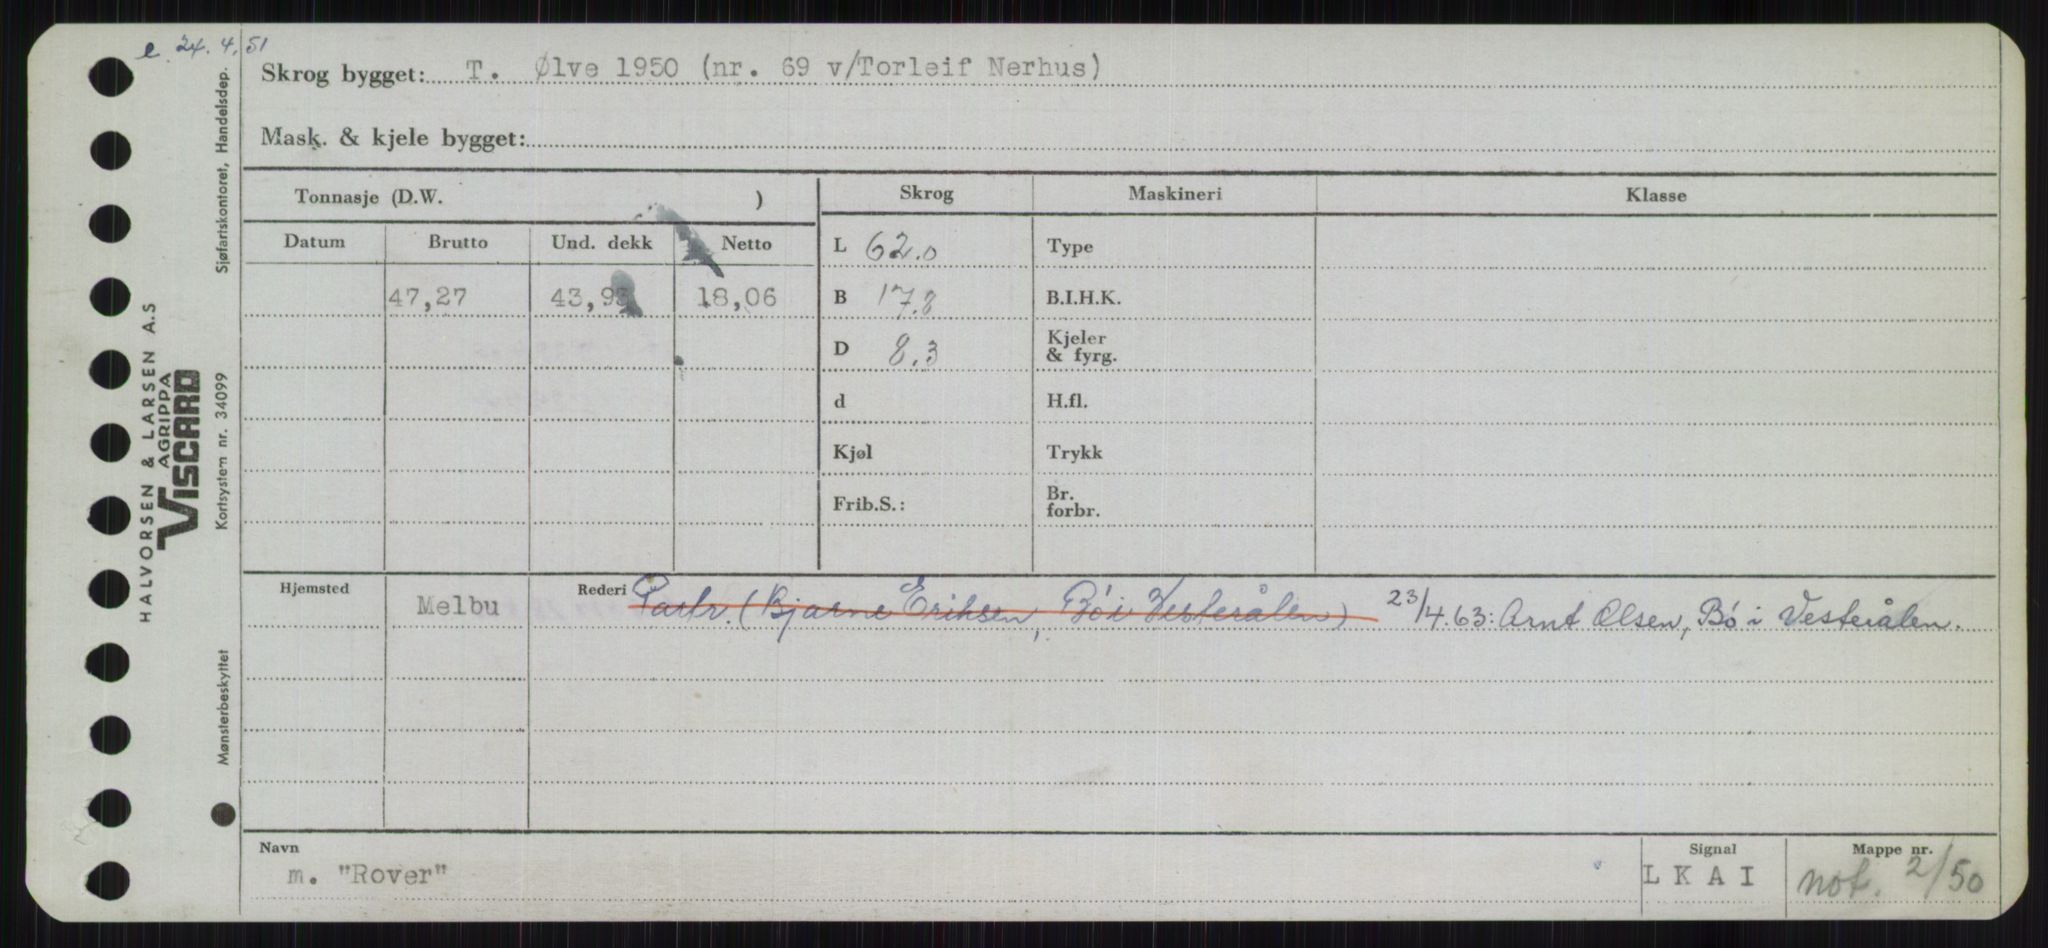 e 24.4.51
Skrog bygget: T. Ølve 1950 (nr. 69 v/Torleif Nerhus)
Mask. & kjele bygget:
Tonnasje (D.W. )
Skrog Maskineri Klasse
Datum Brutto Und. dekk Netto
47,27 43,93 18,06
L 62.0 Type
B 17.8 B.I.H.K.
D 8.3 Kjeler & fyrg.
d H.fl.
Kjøl Trykk
Frib.S.: Br. forbr.
Hjemsted Melbu Rederi Partr. (Bjarne Eriksen, Bö i Vesterålen) 23/4.63: Arnt Olsen, Bö i Vesterålen.
Navn Signal Mappe nr.
m. "Rover" LKAI not. 2/50
HALVORSEN & LARSEN A.S
AGRIPPA
VISCARD
Sjøfartskontoret, Handelsdep.
Kortsystem nr. 34099
Mønsterbeskyttet